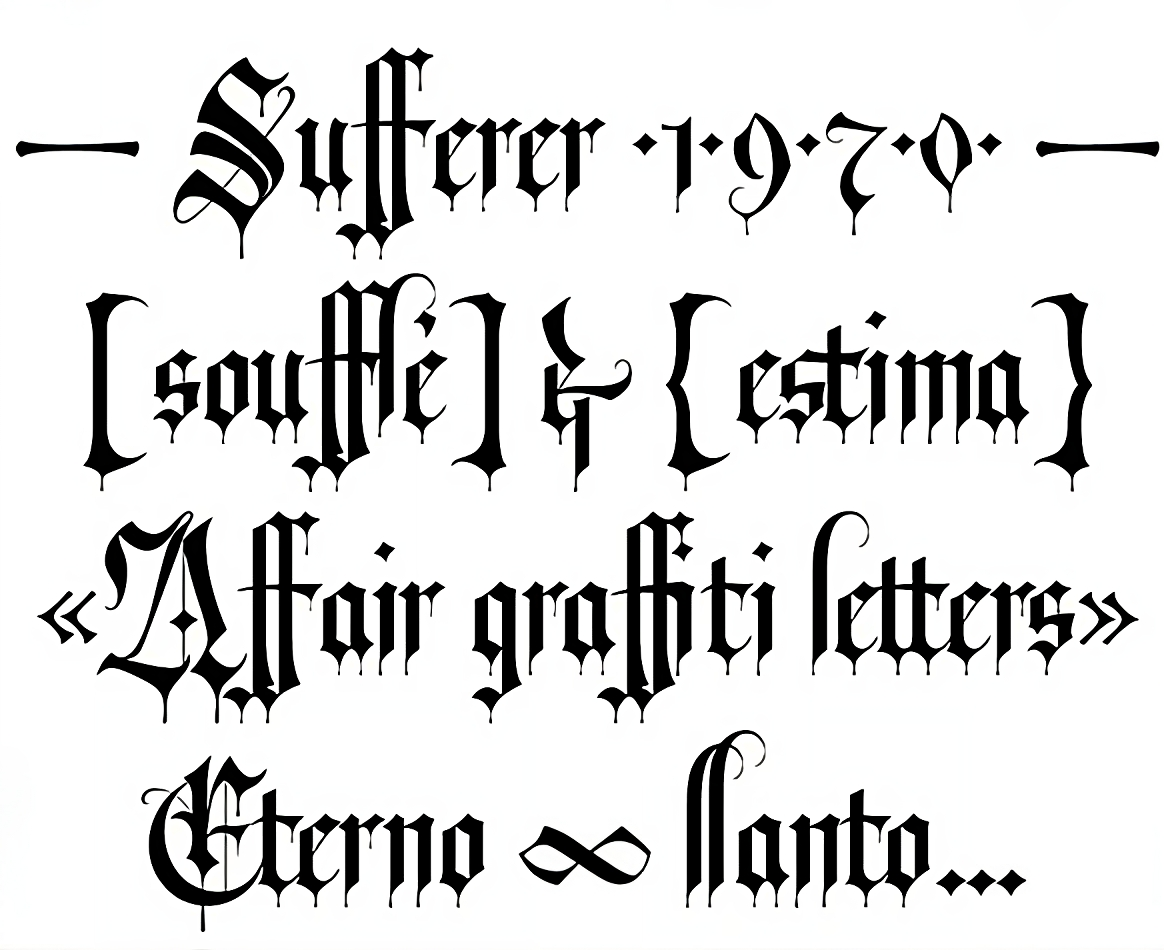 — Sufferer ·1·9·7·0· —
[soufflé] & {estima}
«Affair graffiti letters»
Eterno ∞ llanto...